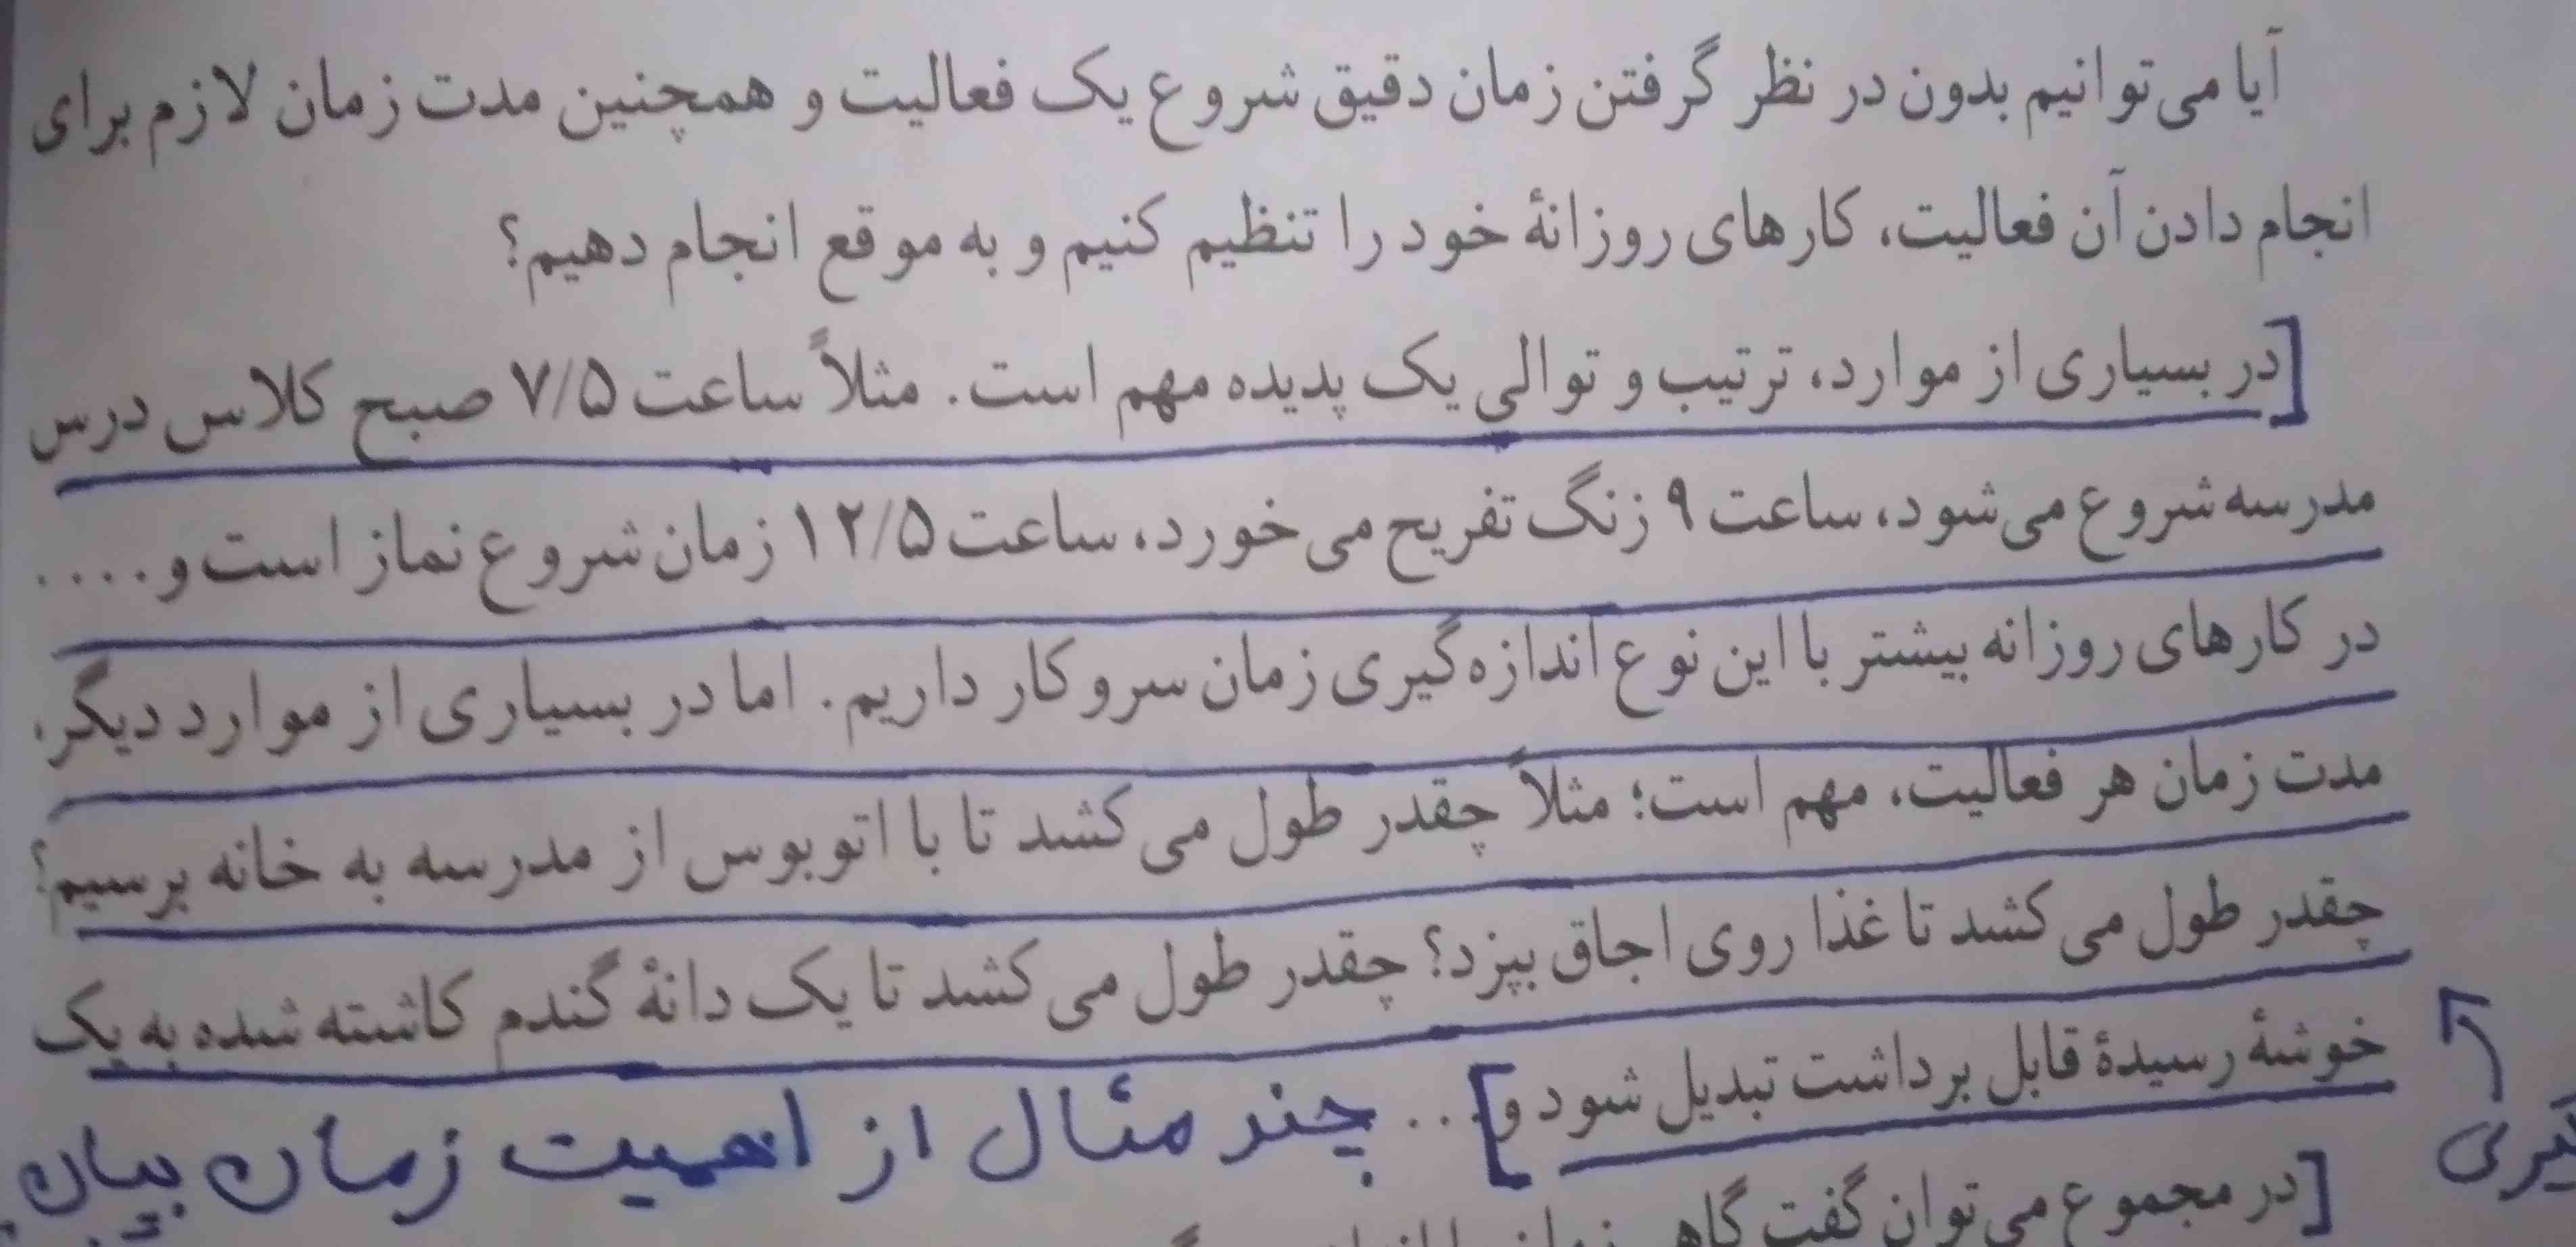 آیا می‌توانیم بدون در نظر گرفتن زمان دقیق شروع یک فعالیت و همچنین مدت زمان لازم برای
انجام دادن آن فعالیت، کارهای روزانهٔ خود را تنظیم کنیم و به موقع انجام دهیم؟
[در بسیاری از موارد، ترتیب و توالی یک پدیده مهم است. مثلاً ساعت ۷/۵ صبح کلاس درس
مدرسه شروع می‌شود، ساعت ۹ زنگ تفریح می‌خورد، ساعت ۱۲/۵ زمان شروع نماز است و....
در کارهای روزانه بیشتر با این نوع اندازه‌گیری زمان سروکار داریم. اما در بسیاری از موارد دیگر،
مدت زمان هر فعالیت، مهم است؛ مثلاً چقدر طول می‌کشد تا با اتوبوس از مدرسه به خانه برسیم؟
چقدر طول می‌کشد تا غذا روی اجاق بپزد؟ چقدر طول می‌کشد تا یک دانهٔ گندم کاشته شده به یک
خوشهٔ رسیدهٔ قابل برداشت تبدیل شود و]... چند مثال از اهمیت زمان بیان
گیری
[در مجموع می‌توان گفت گاهی